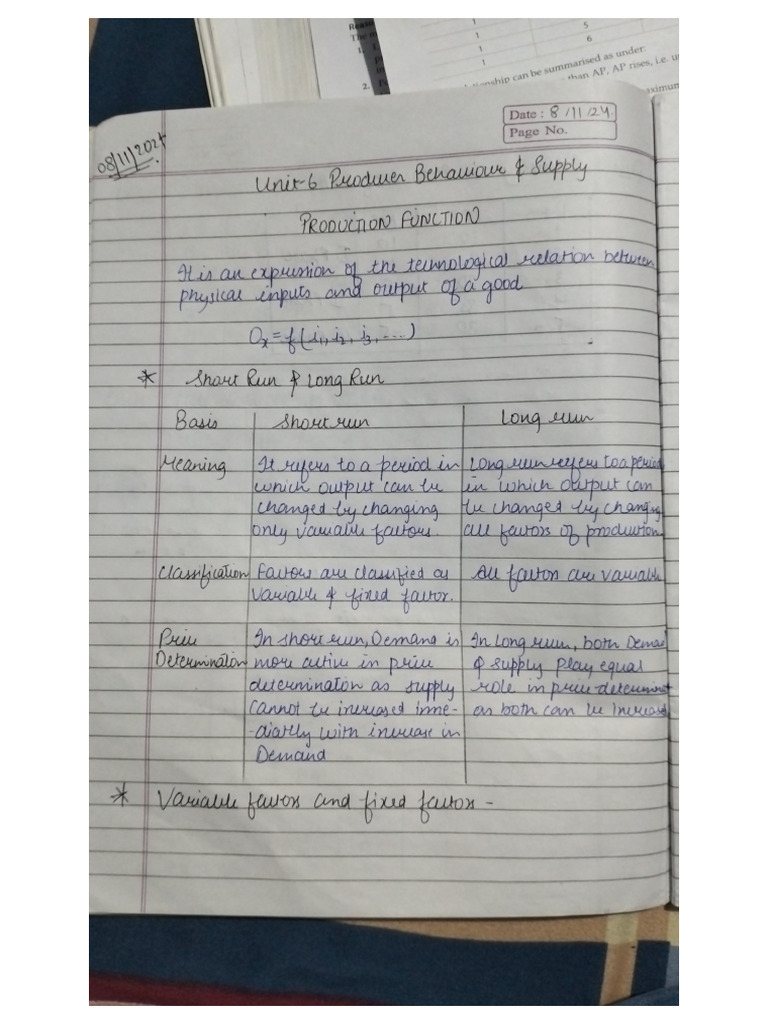 Reas
The m
1. L
1 5
1 6
1
2.
tionship can be summarised as under:
than AP, AP rises, i.e. u
aximum
Date : 8/11/24.
Page No.
08/11/2024
Unit-6 Producer Behaviour & Supply
PRODUCTION FUNCTION
It is an expression of the technological relation between
physical inputs and output of a good
Ox = f(i1, i2, i3, ....)
* Short Run & Long Run
Basis Short run Long run
Meaning It refers to a period in Long run refers to a period
which output can be in which output can
changed by changing be changed by changing
only variable factors. all factors of production.
Classification Factors are classified as All factors are variable
variable & fixed factor.
Price In short run, Demand is In Long run, both Demad
Determination more active in price & supply play equal
determination as supply role in price determinat
cannot be increased imme- as both can be Increased
-diately with increase in
Demand
* Variable factors and fixed factors -